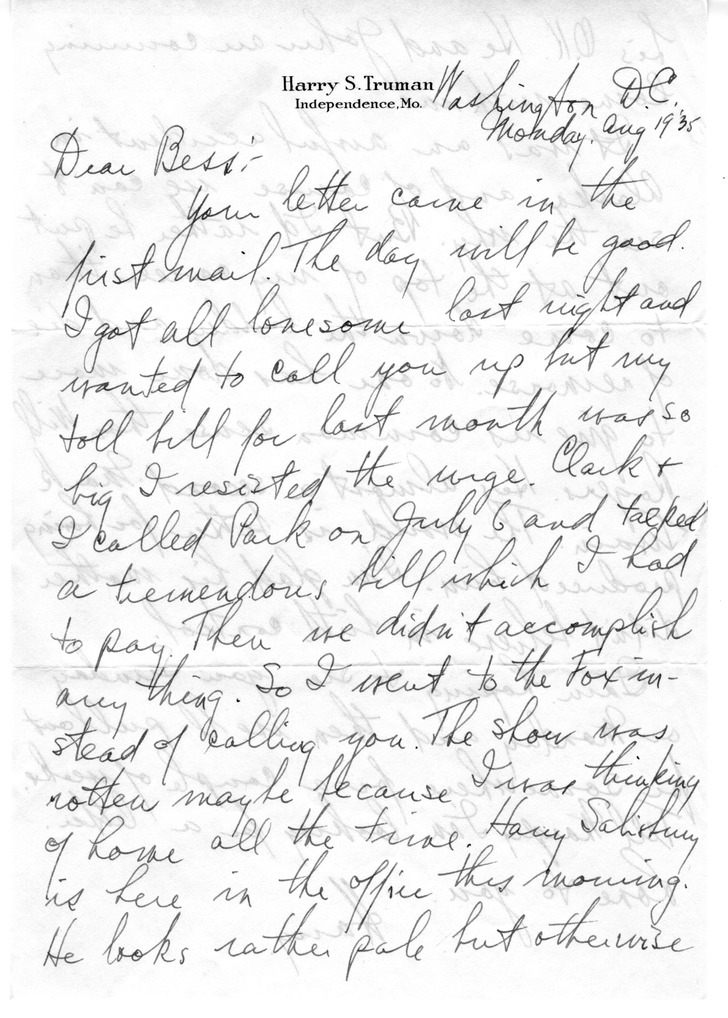 Harry S. Truman
Independence, Mo.
Washington D.C.
Monday, Aug 19 '35
Dear Bess:-
Your letter came in the
first mail. The day will be good.
I got all lonesome last night and
wanted to call you up but my
toll bill for last month was so
big I resisted the urge. Clark +
I called Park on July 6 and talked
a tremendous bill which I had
to pay. Then we didn't accomplish
any thing. So I went to the Fox in-
stead of calling you. The show was
rotten maybe because I was thinking
of home all the time. Harry Salisbury
is here in the office this morning.
He looks rather pale but otherwise